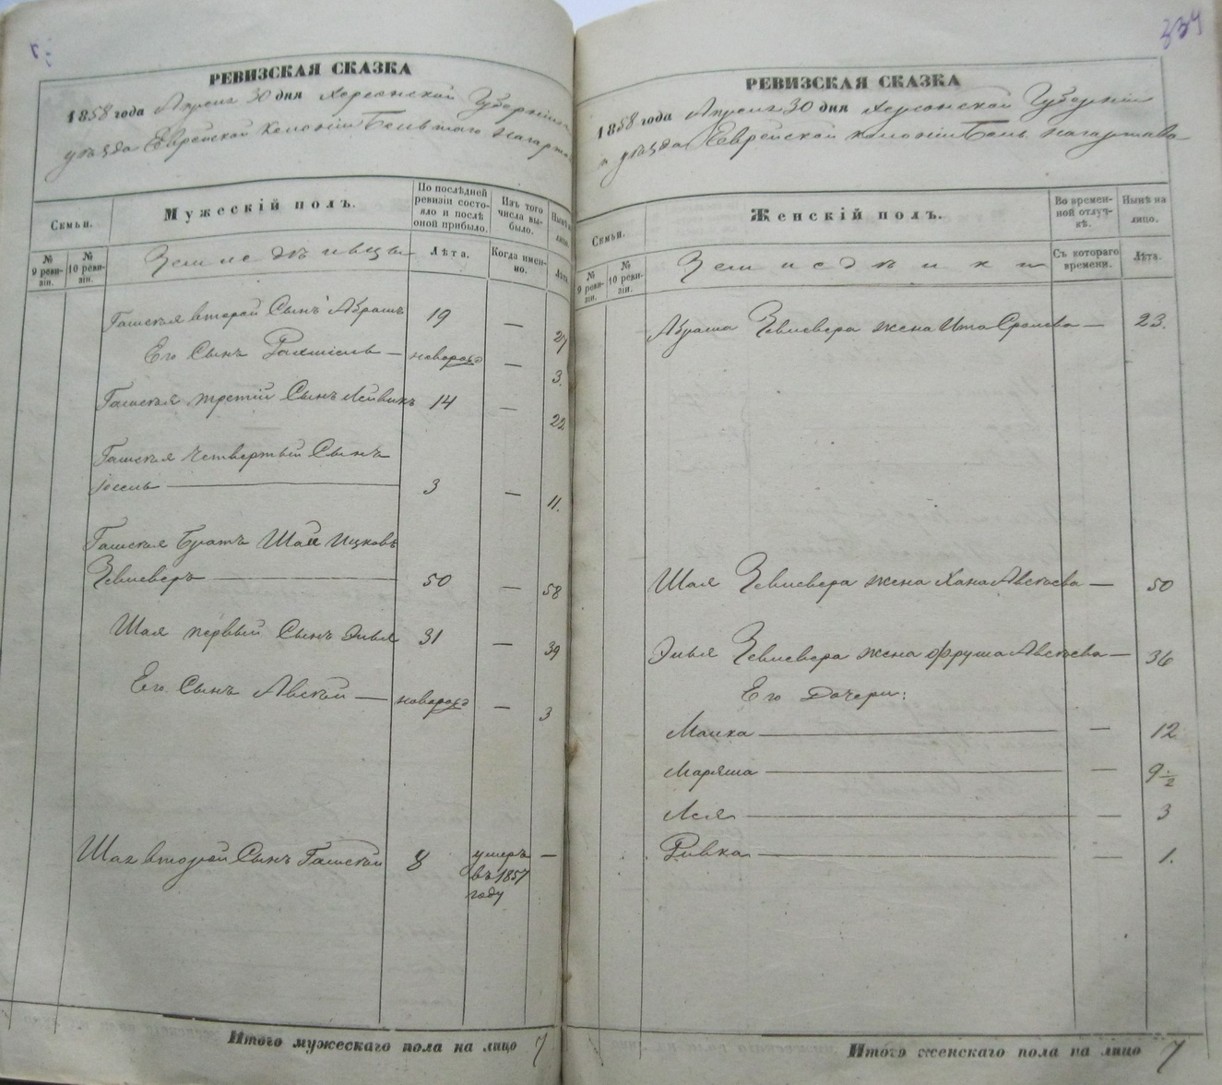 РЕВИЗСКАЯ СКАЗКА
1858 года Апреля 30 дня Херсонской Губерніи
уѣзда Еврейской колоніи
Семьи.
Мужескій полъ.
По послѣдней ревизіи состояло и послѣ оной прибыло.
Изъ того числа выбыло.
Нынѣ на лицо.
№ 9 ревизіи.
№ 10 ревизіи.
Земледѣльцы
Лѣта.
Когда именно.
Лѣта.
второй Сынъ Абрамъ 19 — 27
Его Сынъ — новорожд — 3.
третій Сынъ Лейвикъ 14 — 22
четвертый Сынъ
Іосель — 3 — 11.
Братъ Шая Ицковъ
Зевелеверъ — 50 — 58
Шая первый Сынъ Элья 31 — 39
Его Сынъ Авсѣй — новорожд — 3
Шая второй Сынъ 8 умеръ —
въ 1857
году
Итого мужескаго пола на лицо 7
334
РЕВИЗСКАЯ СКАЗКА
1858 года Апреля 30 дня Херсонской Губерніи
уѣзда Еврейской колоніи Нагартава
Семьи.
Женскій полъ.
Во временной отлучкѣ.
Нынѣ на лицо.
№ 9 ревизіи.
№ 10 ревизіи.
Земледѣлки
Съ котораго времени.
Лѣта.
Абрама Зевелевера жена Ита Сролева — 23.
Шая Зевелевера жена Хана — 50
Элья Зевелевера жена Фруша — 36
Его Дочери:
Малка — — 12
Маряша — — 9 1/2
Лея — — 3
Ривка — — 1.
Итого женскаго пола на лицо 7